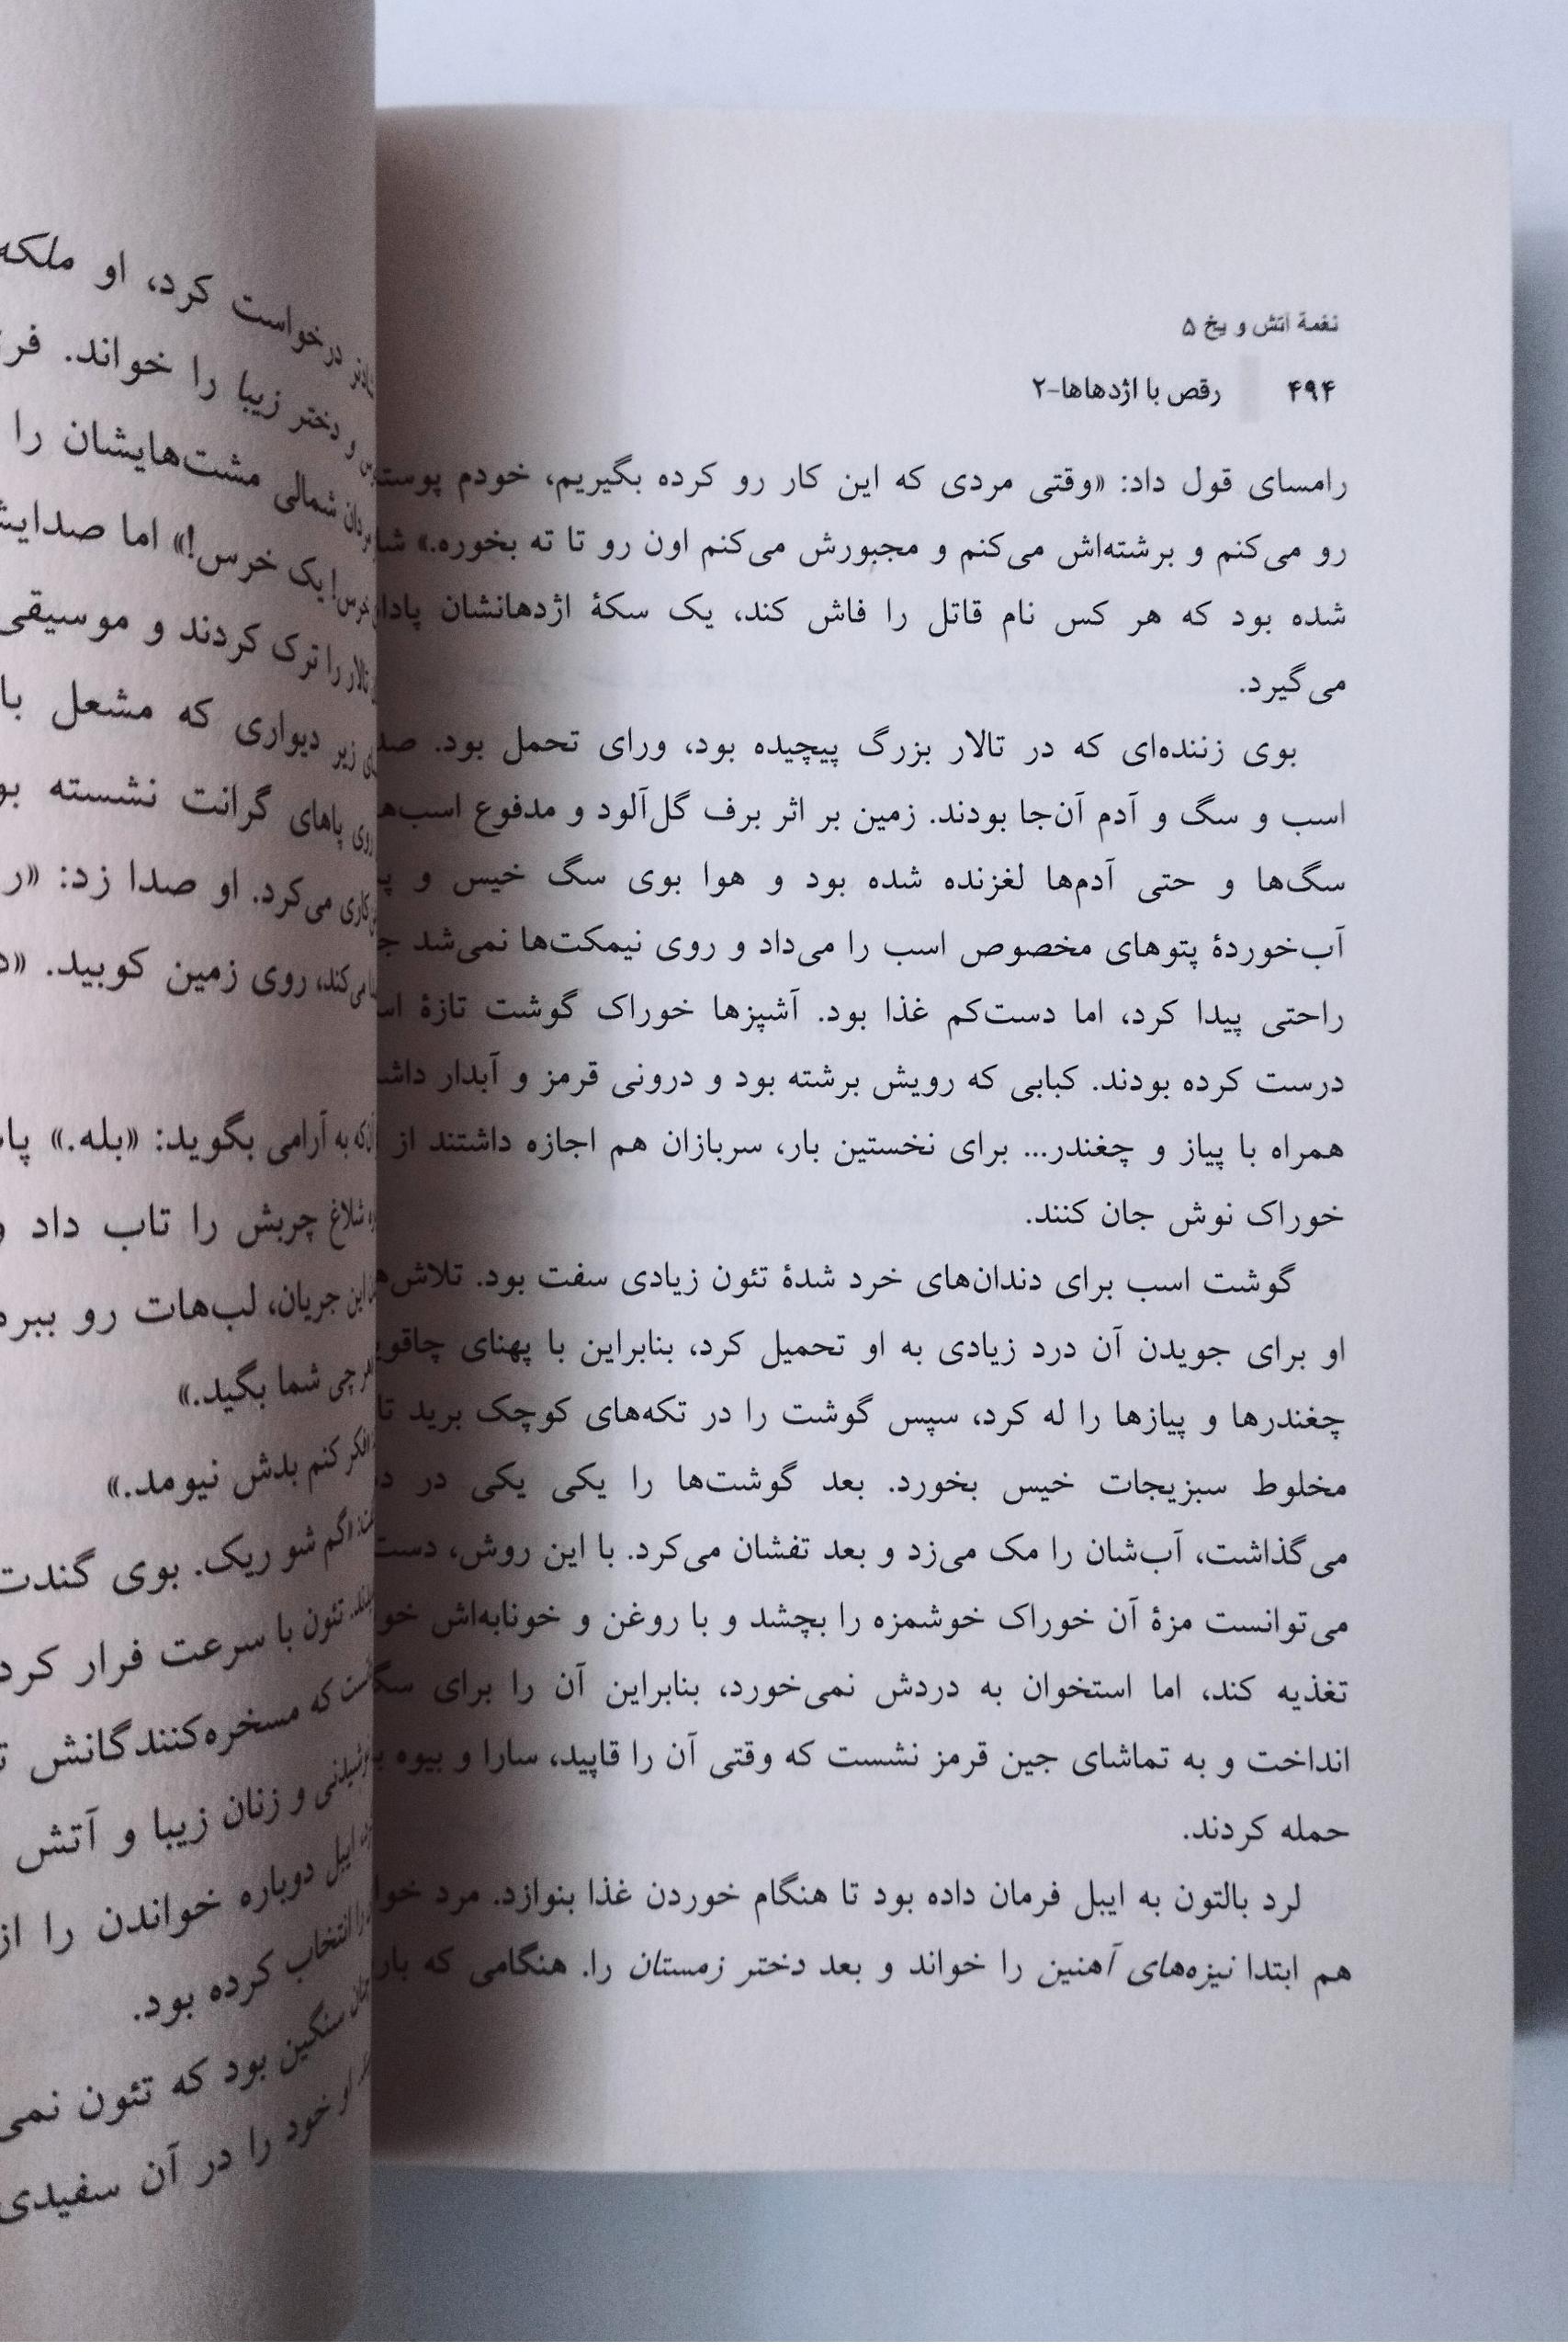 نغمهٔ آتش و یخ ۵
۴۹۴ رقص با اژدهاها-۲
رامسای قول داد: «وقتی مردی که این کار رو کرده بگیریم، خودم
رو می‌کنم و برشته‌اش می‌کنم و مجبورش می‌کنم اون رو تا ته بخوره.»
شده بود که هر کس نام قاتل را فاش کند، یک سکهٔ اژدهانشان
می‌گیرد.
بوی زننده‌ای که در تالار بزرگ پیچیده بود، ورای تحمل بود.
اسب و سگ و آدم آن‌جا بودند. زمین بر اثر برف گل‌آلود و مدفوع
سگ‌ها و حتی آدم‌ها لغزنده شده بود و هوا بوی سگ خیس و
آب‌خوردهٔ پتوهای مخصوص اسب را می‌داد و روی نیمکت‌ها نمی‌شد
راحتی پیدا کرد، اما دست‌کم غذا بود. آشپزها خوراک گوشت تازهٔ
درست کرده بودند. کبابی که رویش برشته بود و درونی قرمز و آبدار
همراه با پیاز و چغندر... برای نخستین بار، سربازان هم اجازه داشتند از
خوراک نوش جان کنند.
گوشت اسب برای دندان‌های خرد شدهٔ تئون زیادی سفت بود.
او برای جویدن آن درد زیادی به او تحمیل کرد، بنابراین با پهنای
چغندرها و پیازها را له کرد، سپس گوشت را در تکه‌های کوچک برید
مخلوط سبزیجات خیس بخورد. بعد گوشت‌ها را یکی یکی در
می‌گذاشت، آب‌شان را مک می‌زد و بعد تفشان می‌کرد. با این روش،
می‌توانست مزهٔ آن خوراک خوشمزه را بچشد و با روغن و خونابه‌اش
تغذیه کند، اما استخوان به دردش نمی‌خورد، بنابراین آن را برای
انداخت و به تماشای جین قرمز نشست که وقتی آن را قاپید، سارا و بیوه
حمله کردند.
لرد بالتون به ایبل فرمان داده بود تا هنگام خوردن غذا بنوازد. مرد
هم ابتدا نیزه‌های آهنین را خواند و بعد دختر زمستان را. هنگامی که
درخواست کرد، او ملکه
و دختر زیبا را خواند.
شمالی مشت‌هایشان را
یک خرس!» اما
را ترک کردند و موسیقی
زیر دیواری که مشعل
روی پاهای گرانت نشسته
می‌کرد. او صدا زد:
می‌کند، روی زمین کوبید.
که به آرامی بگوید: «بله.»
شلاغ چربش را تاب داد و
این جریان، لب‌هات رو
شما بگید.»
کنم بدش نیومد.»
گم شو ریک. بوی گندت
تئون با سرعت فرار
که مسخره‌کنندگانش
و زنان زیبا و آتش
ایبل دوباره خواندن را از
را انتخاب کرده بود.
سنگین بود که تئون
خود را در آن سفیدی